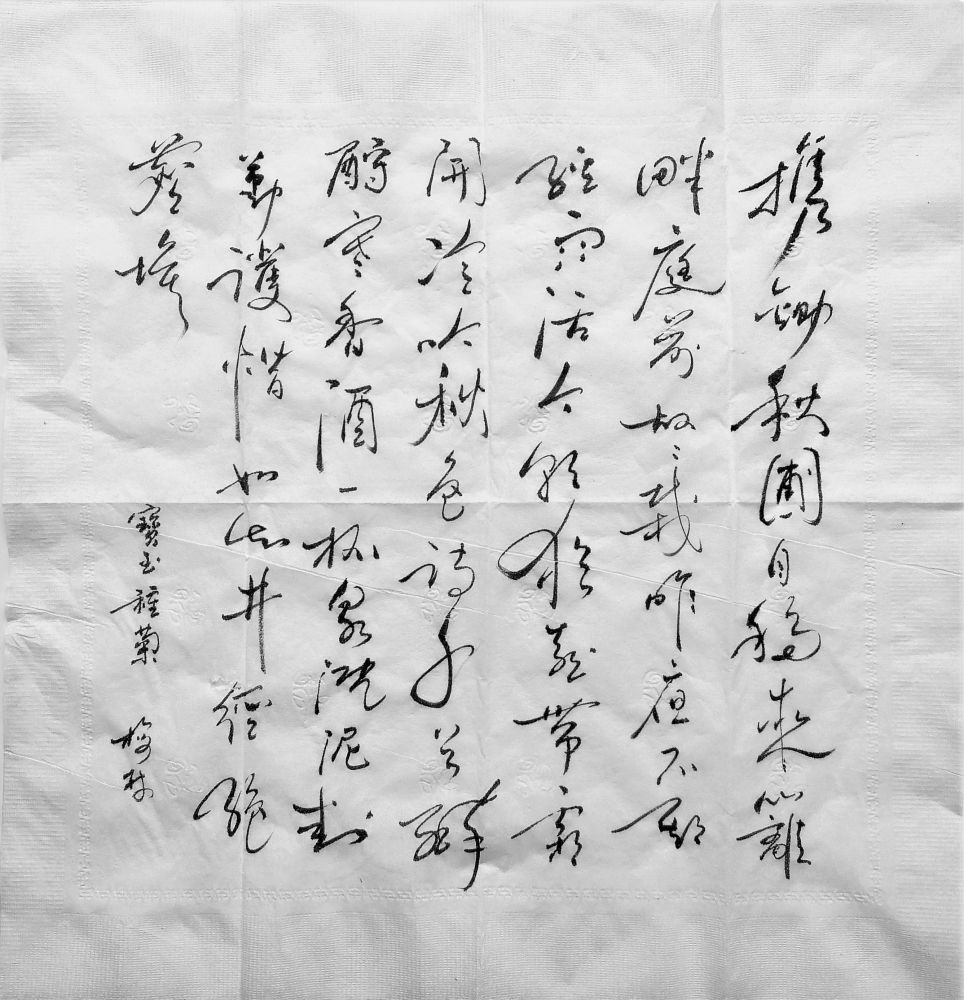 攜鋤秋圃自移來籬
畔庭前故〻栽昨夜不期
經雨活今朝猶喜帶霜
開冷吟秋色詩千首醉
酹寒香酒一杯泉溉泥封
勤護惜如知井徑絕
塵埃
寶玉種菊 梅村